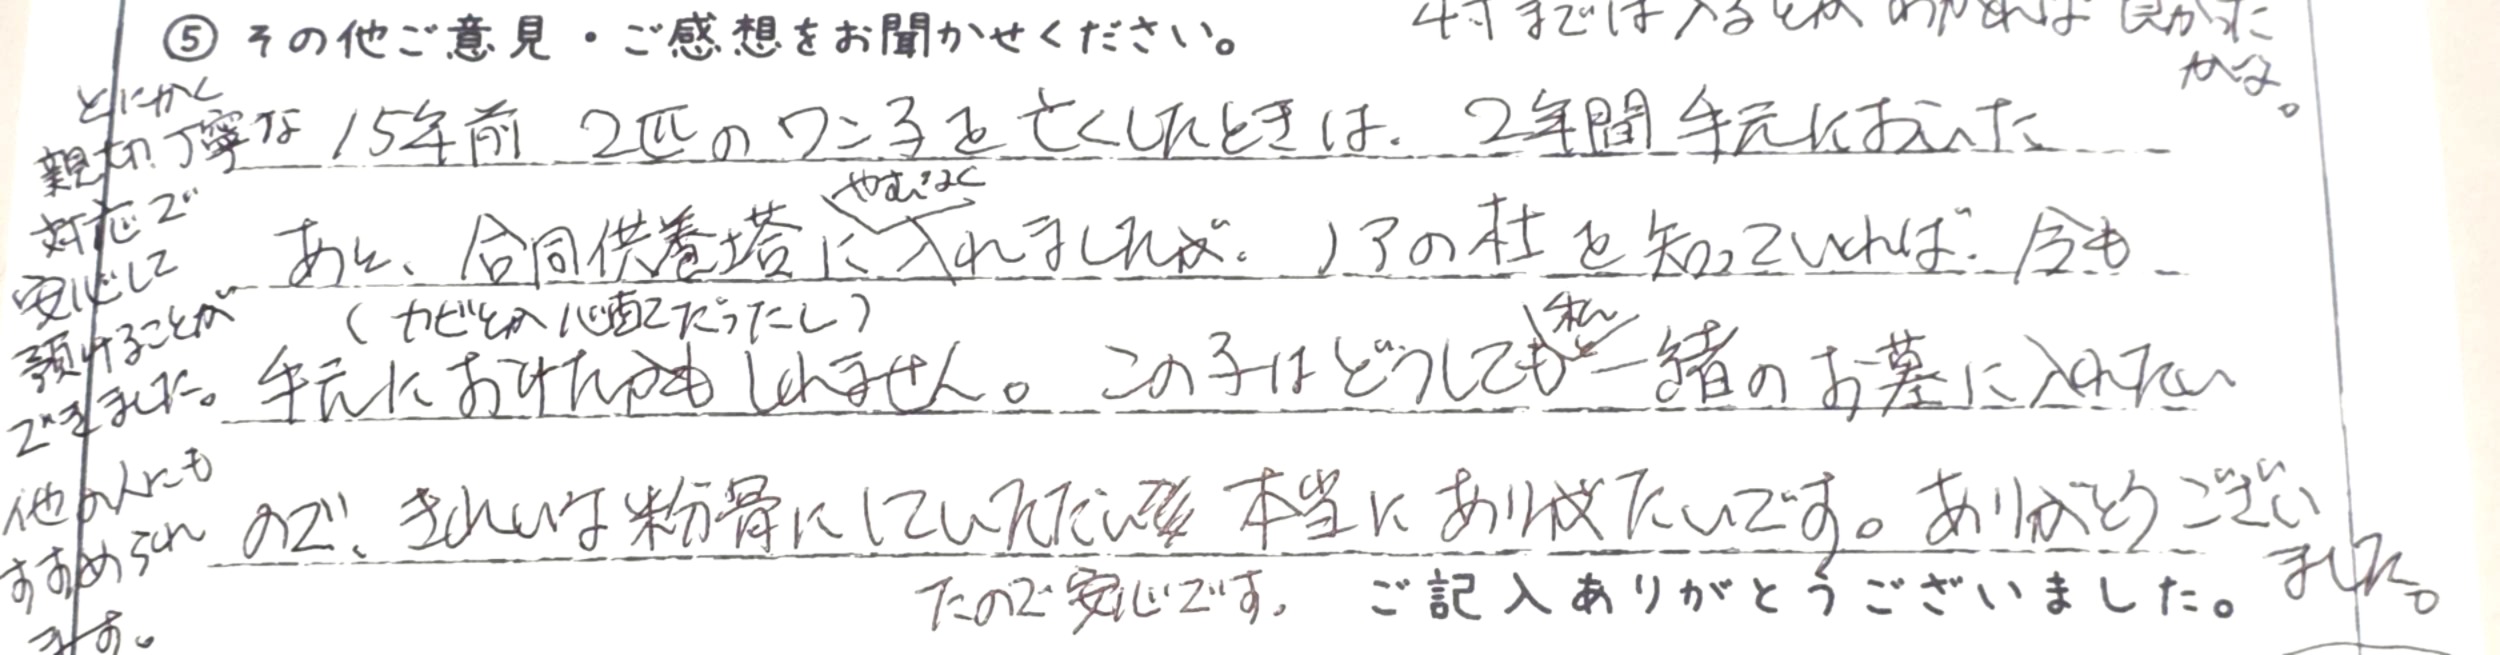 ⑤ その他ご意見・ご感想をお聞かせください。
までは入るとかわかれば良かった
かな。
15年前 2匹のワン子を亡くしたときは、2年間手元においた
やむなく
あと、合同供養塔に入れましたが、ノアの杜を知っていれば、今も
(カビとか心配だったし)
手元におけたかもしれません。この子はどうしても一緒のお墓に入れたい
私と
ので、きれいな粉骨にしていただい 本当にあり難たいです。ありがとうござい
ました。
たので安心です。
ご記入ありがとうございました。
とにかく
親切丁寧な
対応で
安心して
預けることが
できました。
他の人にも
すすめられ
ます。